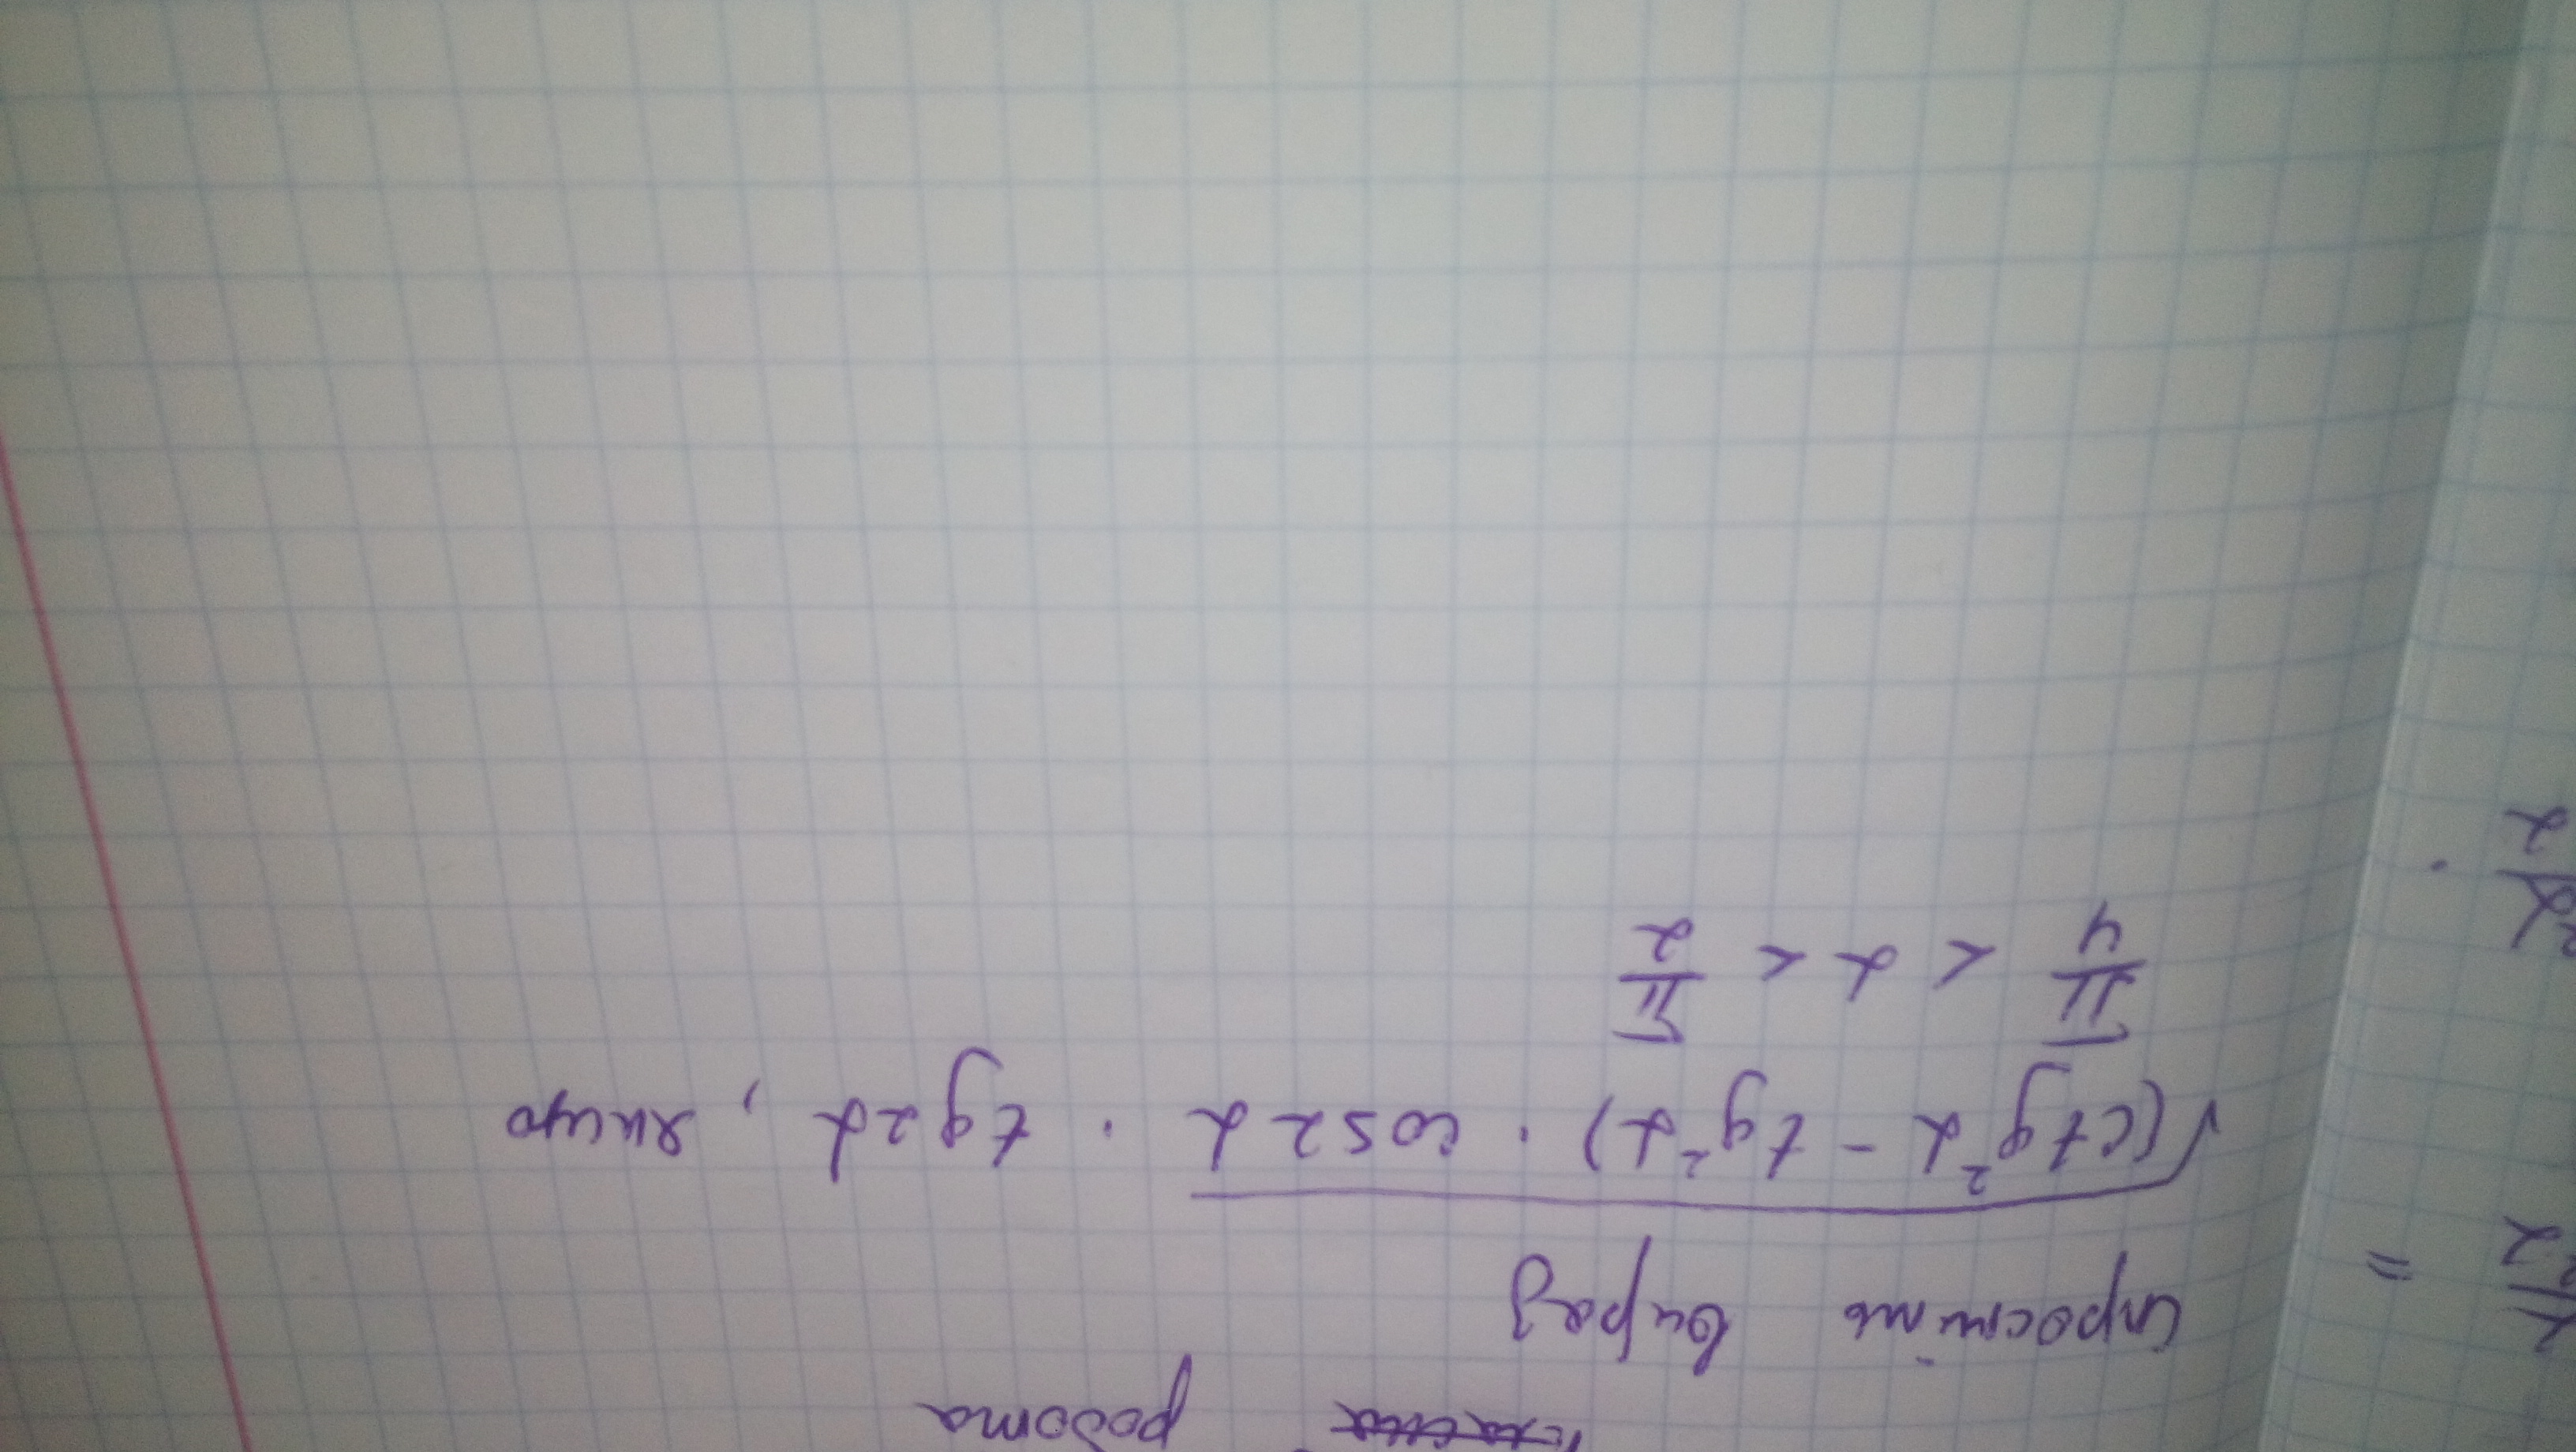 робота
спростіть вираз
√(ctg²α - tg²α) · cos2α · tg2α, якщо
π/4 < α < π/2
=